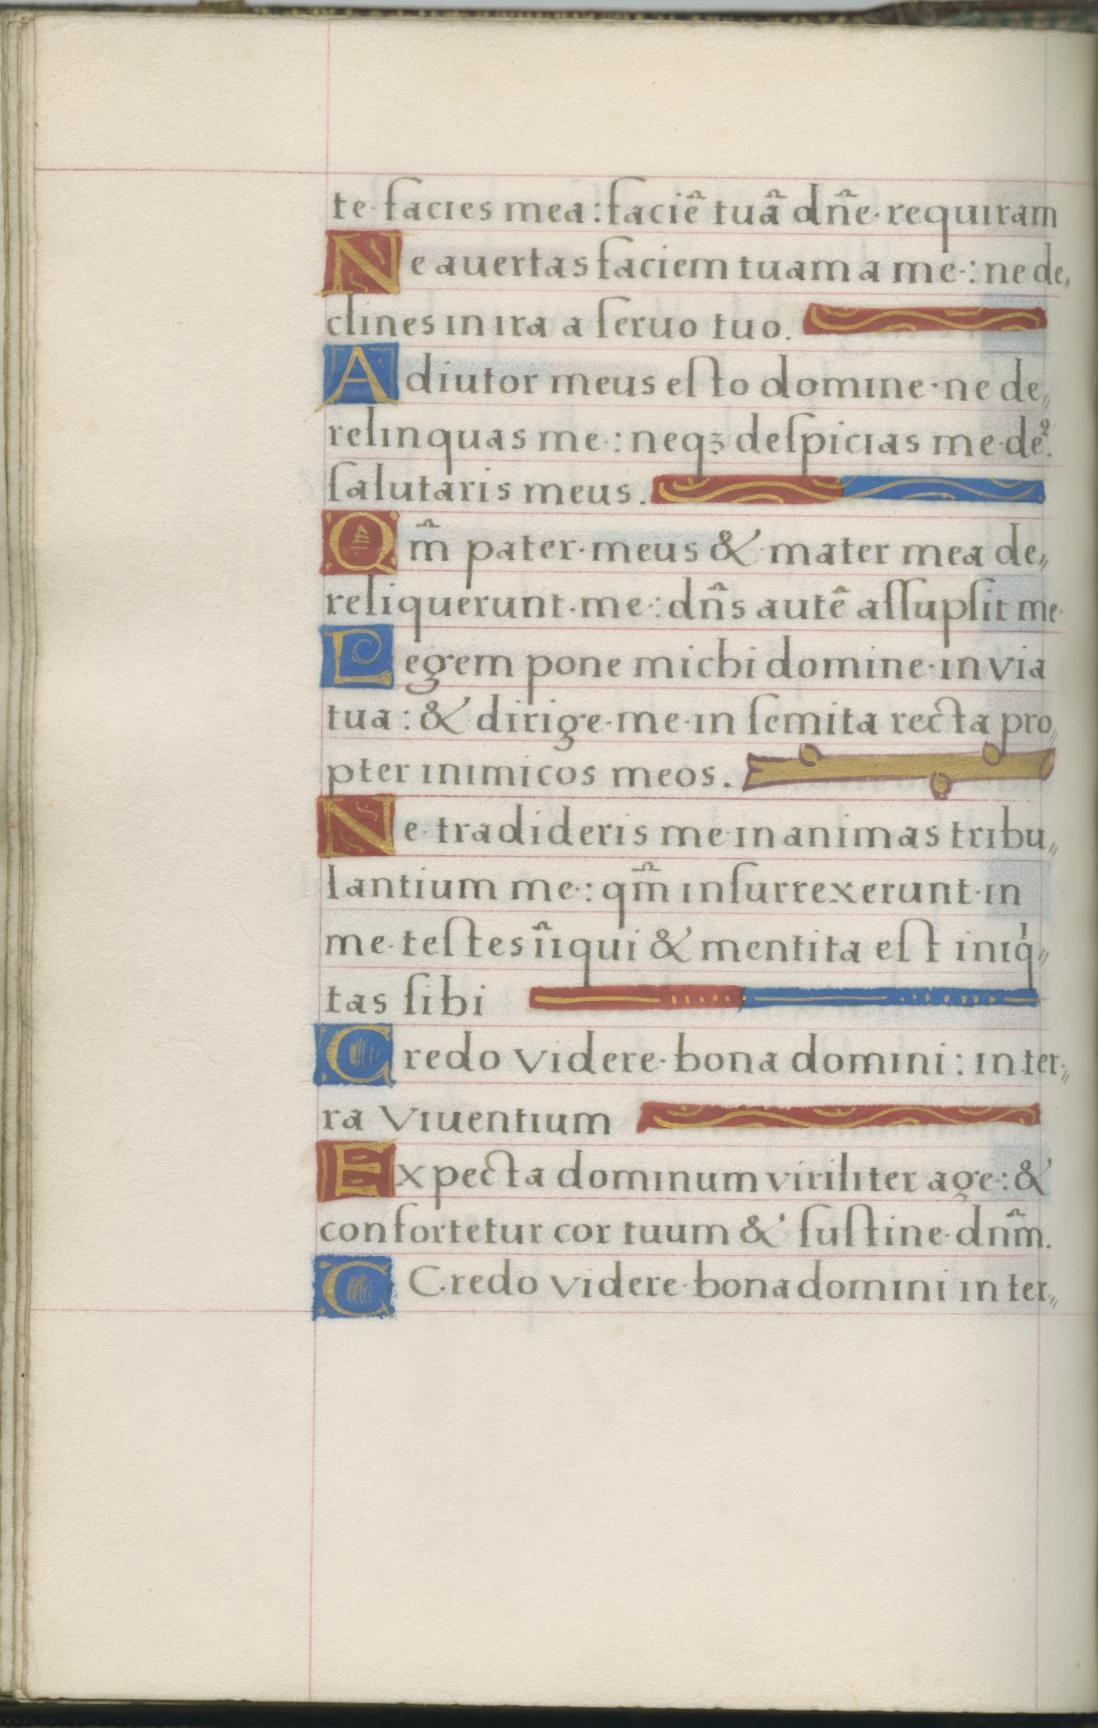 te·facies mea:faciē tuā dn̄e·requiram
Ne auertas faciem tuam a me·:ne de,,
clines in ira a ſeruo tuo.
Adiutor meus eſto domine·ne de,,
relinquas me·:neqꝫ deſpicias me·deꝰ.
ſalutaris meus.
Qm̄ pater·meus & mater mea de,,
reliquerunt·me·:dn̄s autē aſſupſit me·
Legem pone michi domine·in via
tua:& dirige·me·in ſemita recta pro,,
pter inimicos meos.
Ne·tradideris me·in animas tribu,,
lantium me·:qm̄ inſurrexerunt·in
me·teſtes iı̄qui & mentita eſt iniqͥ,,
tas ſibi
Credo videre·bona domini:in ter,,
ra viuentium
Expecta dominum viriliter age·:&
confortetur cor tuum & ſuſtine·dnm̄.
C C·redo videre·bona domini in ter,,